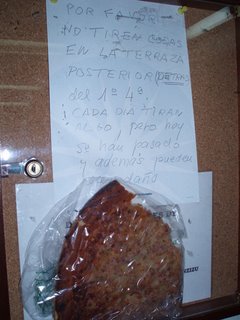 POR FAVOR
NO TIREN COSAS
EN LA TERRAZA
POSTERIOR (DETRAS)
del 1º 4ª.
CADA DIA TIRAN
ALGO, pero hoy
se han pasado
y además pueden
daño